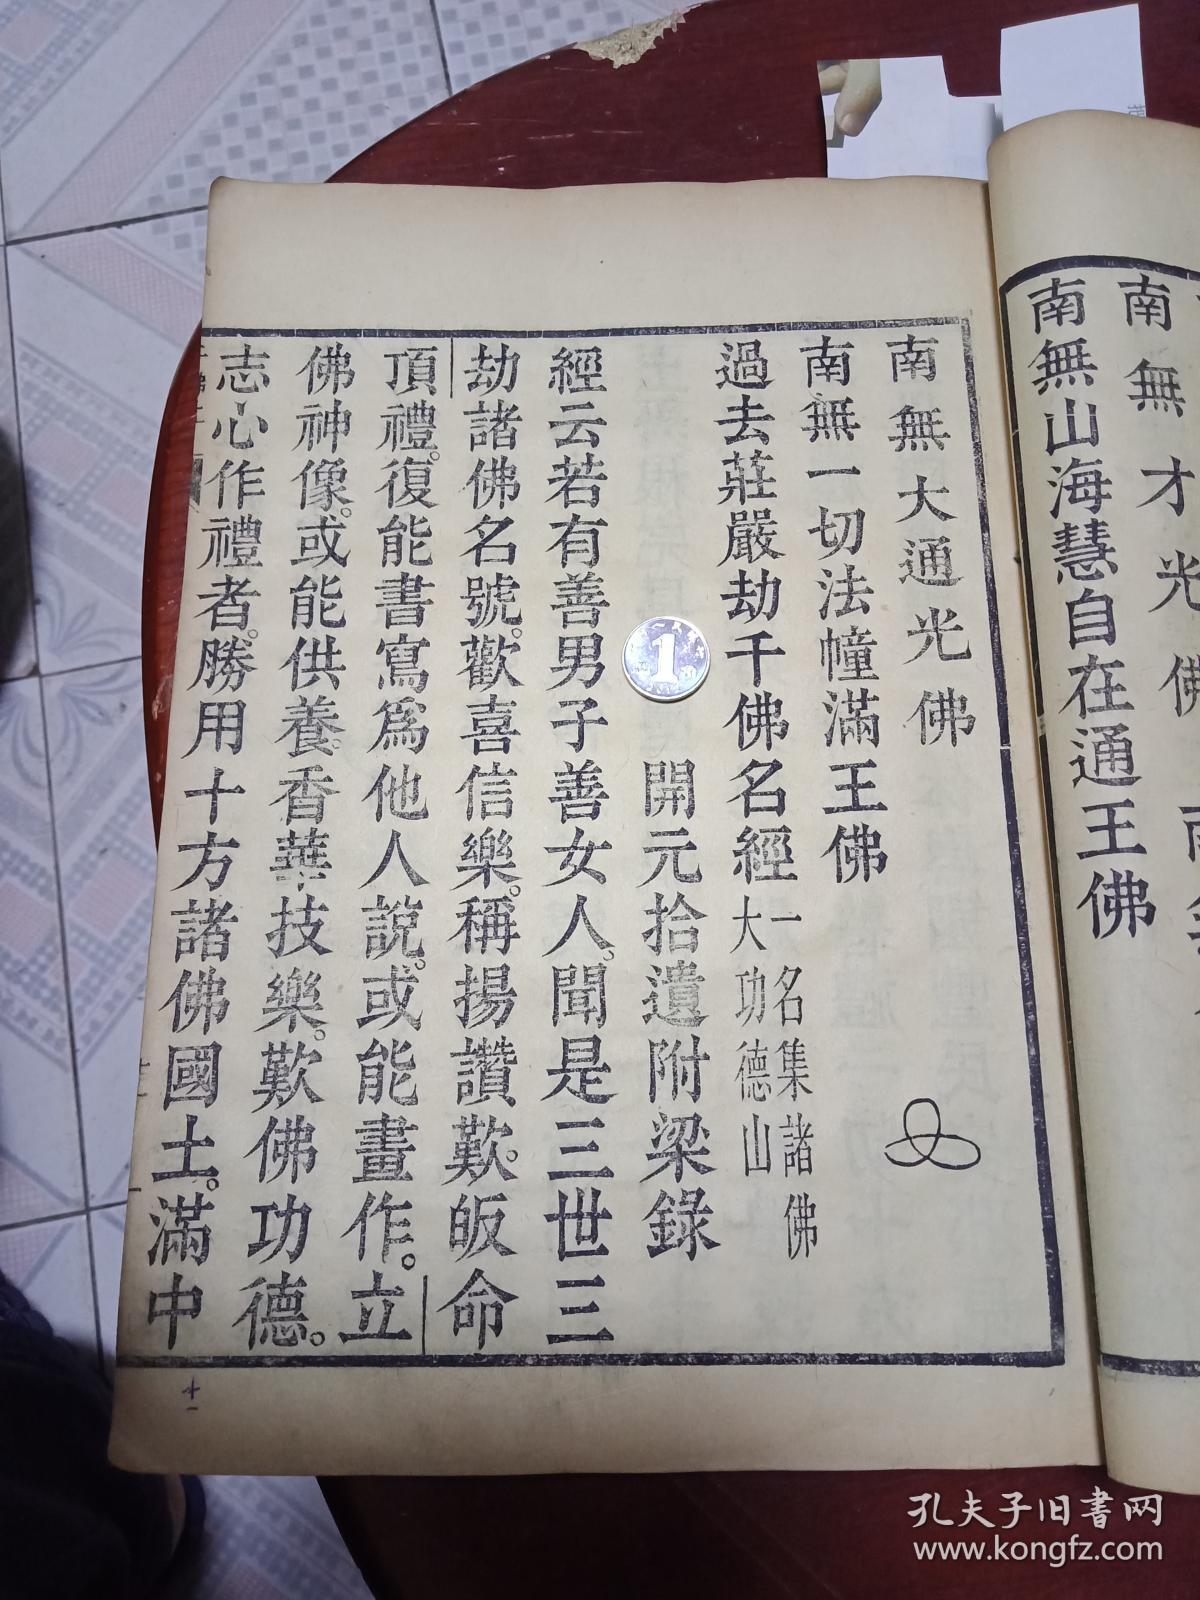 南無才光佛
南無山海慧自在通王佛
南無大通光佛
南無一切法幢滿王佛
過去莊嚴劫千佛名經 一名集諸佛大功德山
開元拾遺附梁錄
經云若有善男子善女人。聞是三世三
劫諸佛名號。歡喜信樂。稱揚讚歎。皈命
頂禮。復能書寫爲他人說。或能畫作。立
佛神像。或能供養。香華技樂。歎佛功德。
志心作禮者。勝用十方諸佛國土。滿中
十一
1
孔夫子旧书网
www.kongfz.com